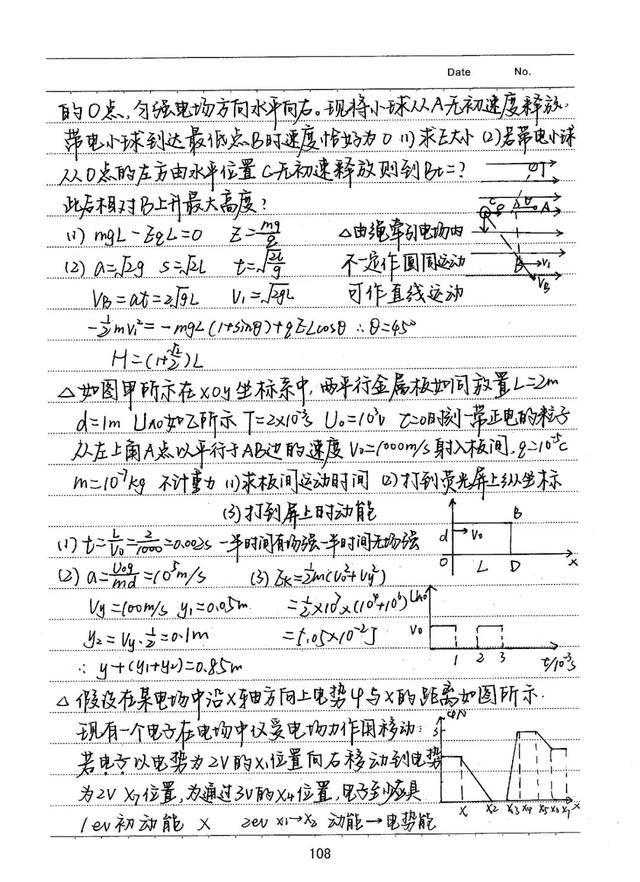 Date No.
的O点,匀强电场方向水平向右。现将小球从A无初速度释放.
带电小球到达最低点B时速度恰好为0 (1)求E大小 (2)若带电小球
从O点的左方由水平位置C无初速释放则到Bt=?
此后相对B上升最大高度?
(1) mgL-EqL=0 E=mg/q △由绳牵引电场内
(2) a=√2g s=√2L t=√2L/g 不一定作圆周运动
VB=at=2√gL V1=√2gL 可作直线运动
-1/2mv1²=-mgL(1+sinθ)+qELcosθ ∴θ=45°
H=(1+√2/2)L
C O A
B V1
VB
△如图甲所示在xoy坐标系中,两平行金属板如问放置L=2m
d=1m UAO如乙所示T=2×10⁻³s U0=10³v t=0时刻一带正电的粒子
从左上角A点以平行于AB边的速度V0=1000m/s射入板间,q=10⁻⁵C
m=10⁻⁷kg 不计重力 (1)求板间运动时间 (2)打到荧光屏上纵坐标
(3)打到屏上时动能
(1) t=L/V0=2/1000=0.002s 一半时间有场强一半时间无场强
(2) a=U0q/md=10⁵m/s (3) Ek=1/2m(V0²+Vy²)
Vy=100m/s y1=0.05m =1/2×10⁻⁷×(10⁴+10⁶)
y2=Vy·1/2=0.1m =5.05×10⁻²J
∴ y+(y1+y2)=0.85m
B
d V0
O L D x
UAO
V0
1 2 3 t/10⁻³s
△假设在某电场中沿x轴方向上电势φ与x的距离如图所示.
现有一个电子在电场中仅受电场力作用移动:
若电子以电势为2V的x1位置向右移动到电势
为2V x7位置,为通过3V的x4位置,电子至少应具
1ev初动能 x 2ev x1→x2 动能→电势能
φ/V
3
x x2 x3 x4 x5 x6 x7 x
108